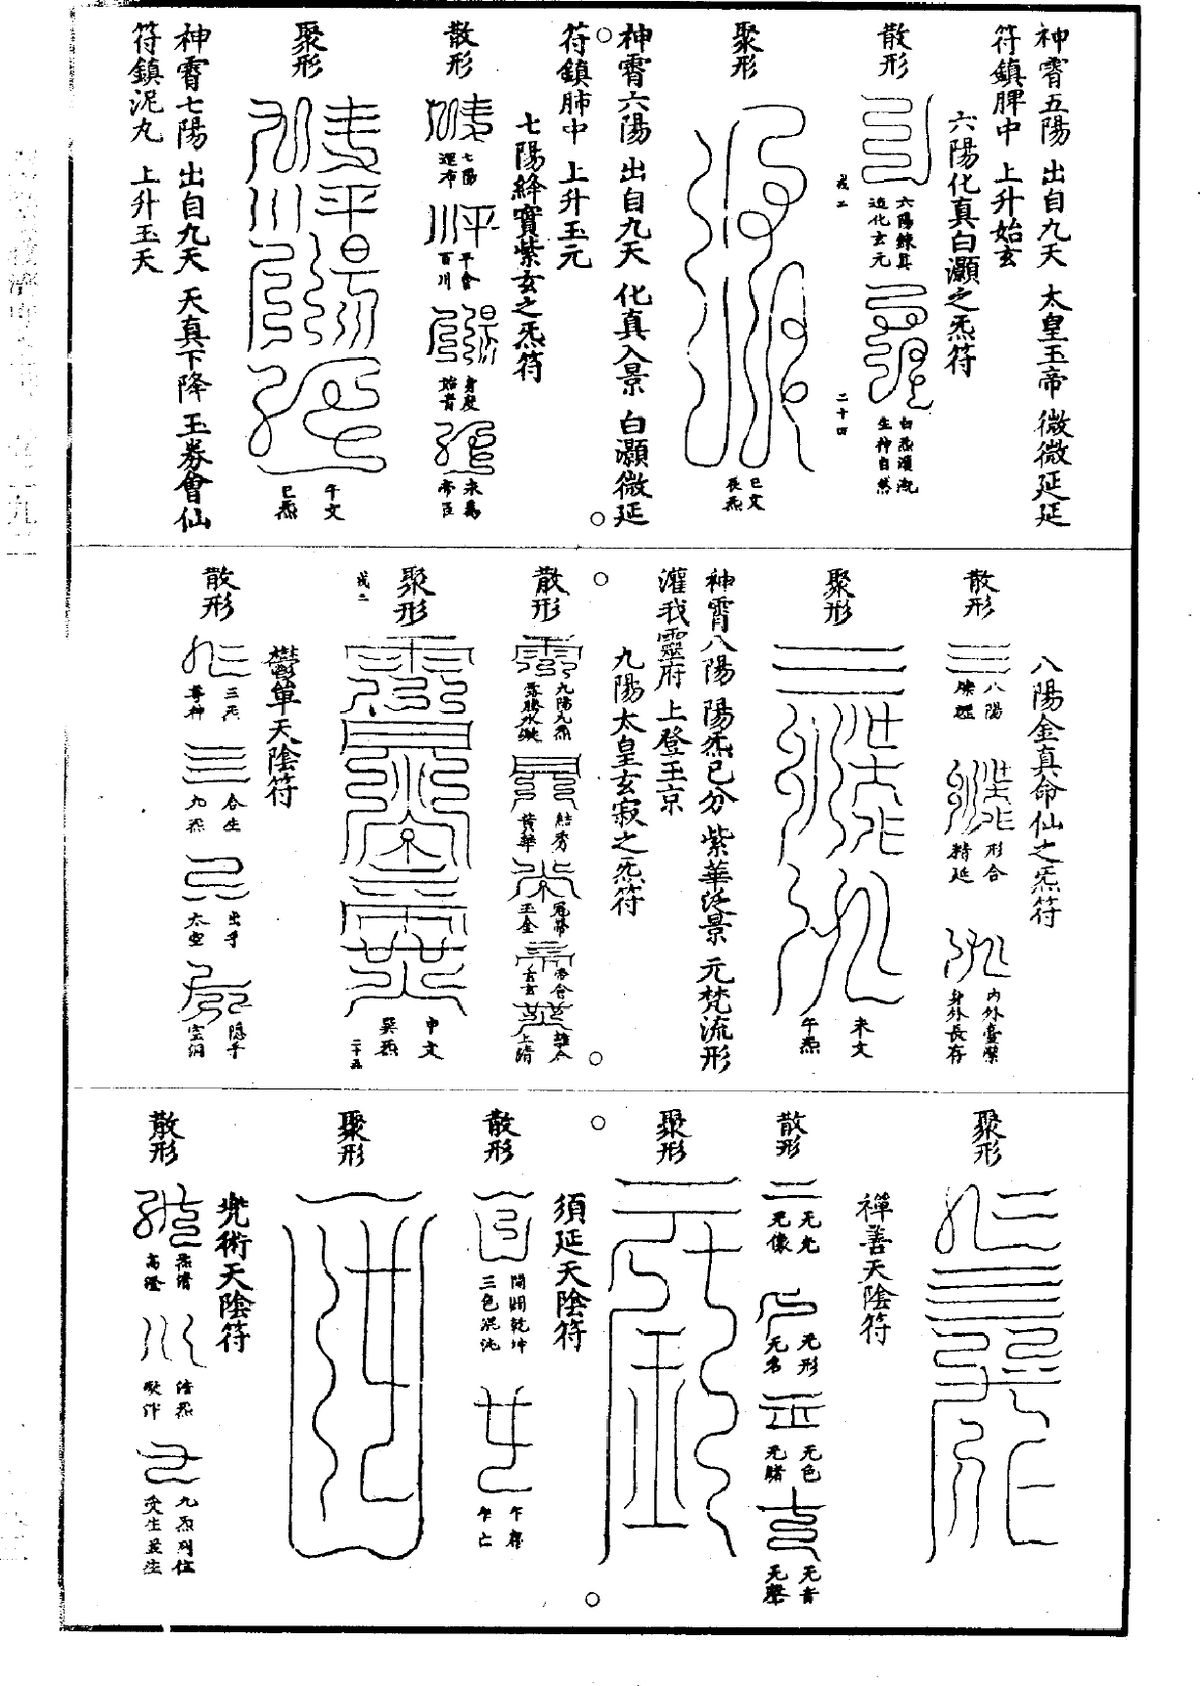 神霄五陽 出自九天 太皇玉帝 微微延延
符鎮脾中 上升始玄
六陽化真白灝之炁符
散形
六陽鍊真
造化玄元
白炁灝凝
生神自然
聚形
巳文
辰炁
神霄六陽 出自九天 化真入景 白灝微延
符鎮肺中 上升玉元
七陽絳實紫玄之炁符
散形
七陽
運布
平會
百川
身度
始青
帝臣
聚形
午文
巳炁
神霄七陽 出自九天 天真下降 玉券會仙
符鎮泥丸 上升玉天
八陽金真命仙之炁符
散形
八陽
形合
精延
身外長存
聚形
未文
午炁
神霄八陽 陽炁已分 紫華泛景 元梵流形
灌我靈府 上登玉京
九陽太皇玄寂之炁符
散形
九陽九炁
結秀
黃華
玉金
聚形
申文
二十五
鬱單天陰符
散形
三炁
合生
九炁
出乎
太空
隱乎
空洞
聚形
禪善天陰符
散形
无光
无像
无形
无名
无色
无賭
无音
无聲
聚形
須延天陰符
散形
開闢乾坤
三色混沌
聚形
兜術天陰符
散形
炁清
高澄
九炁列位